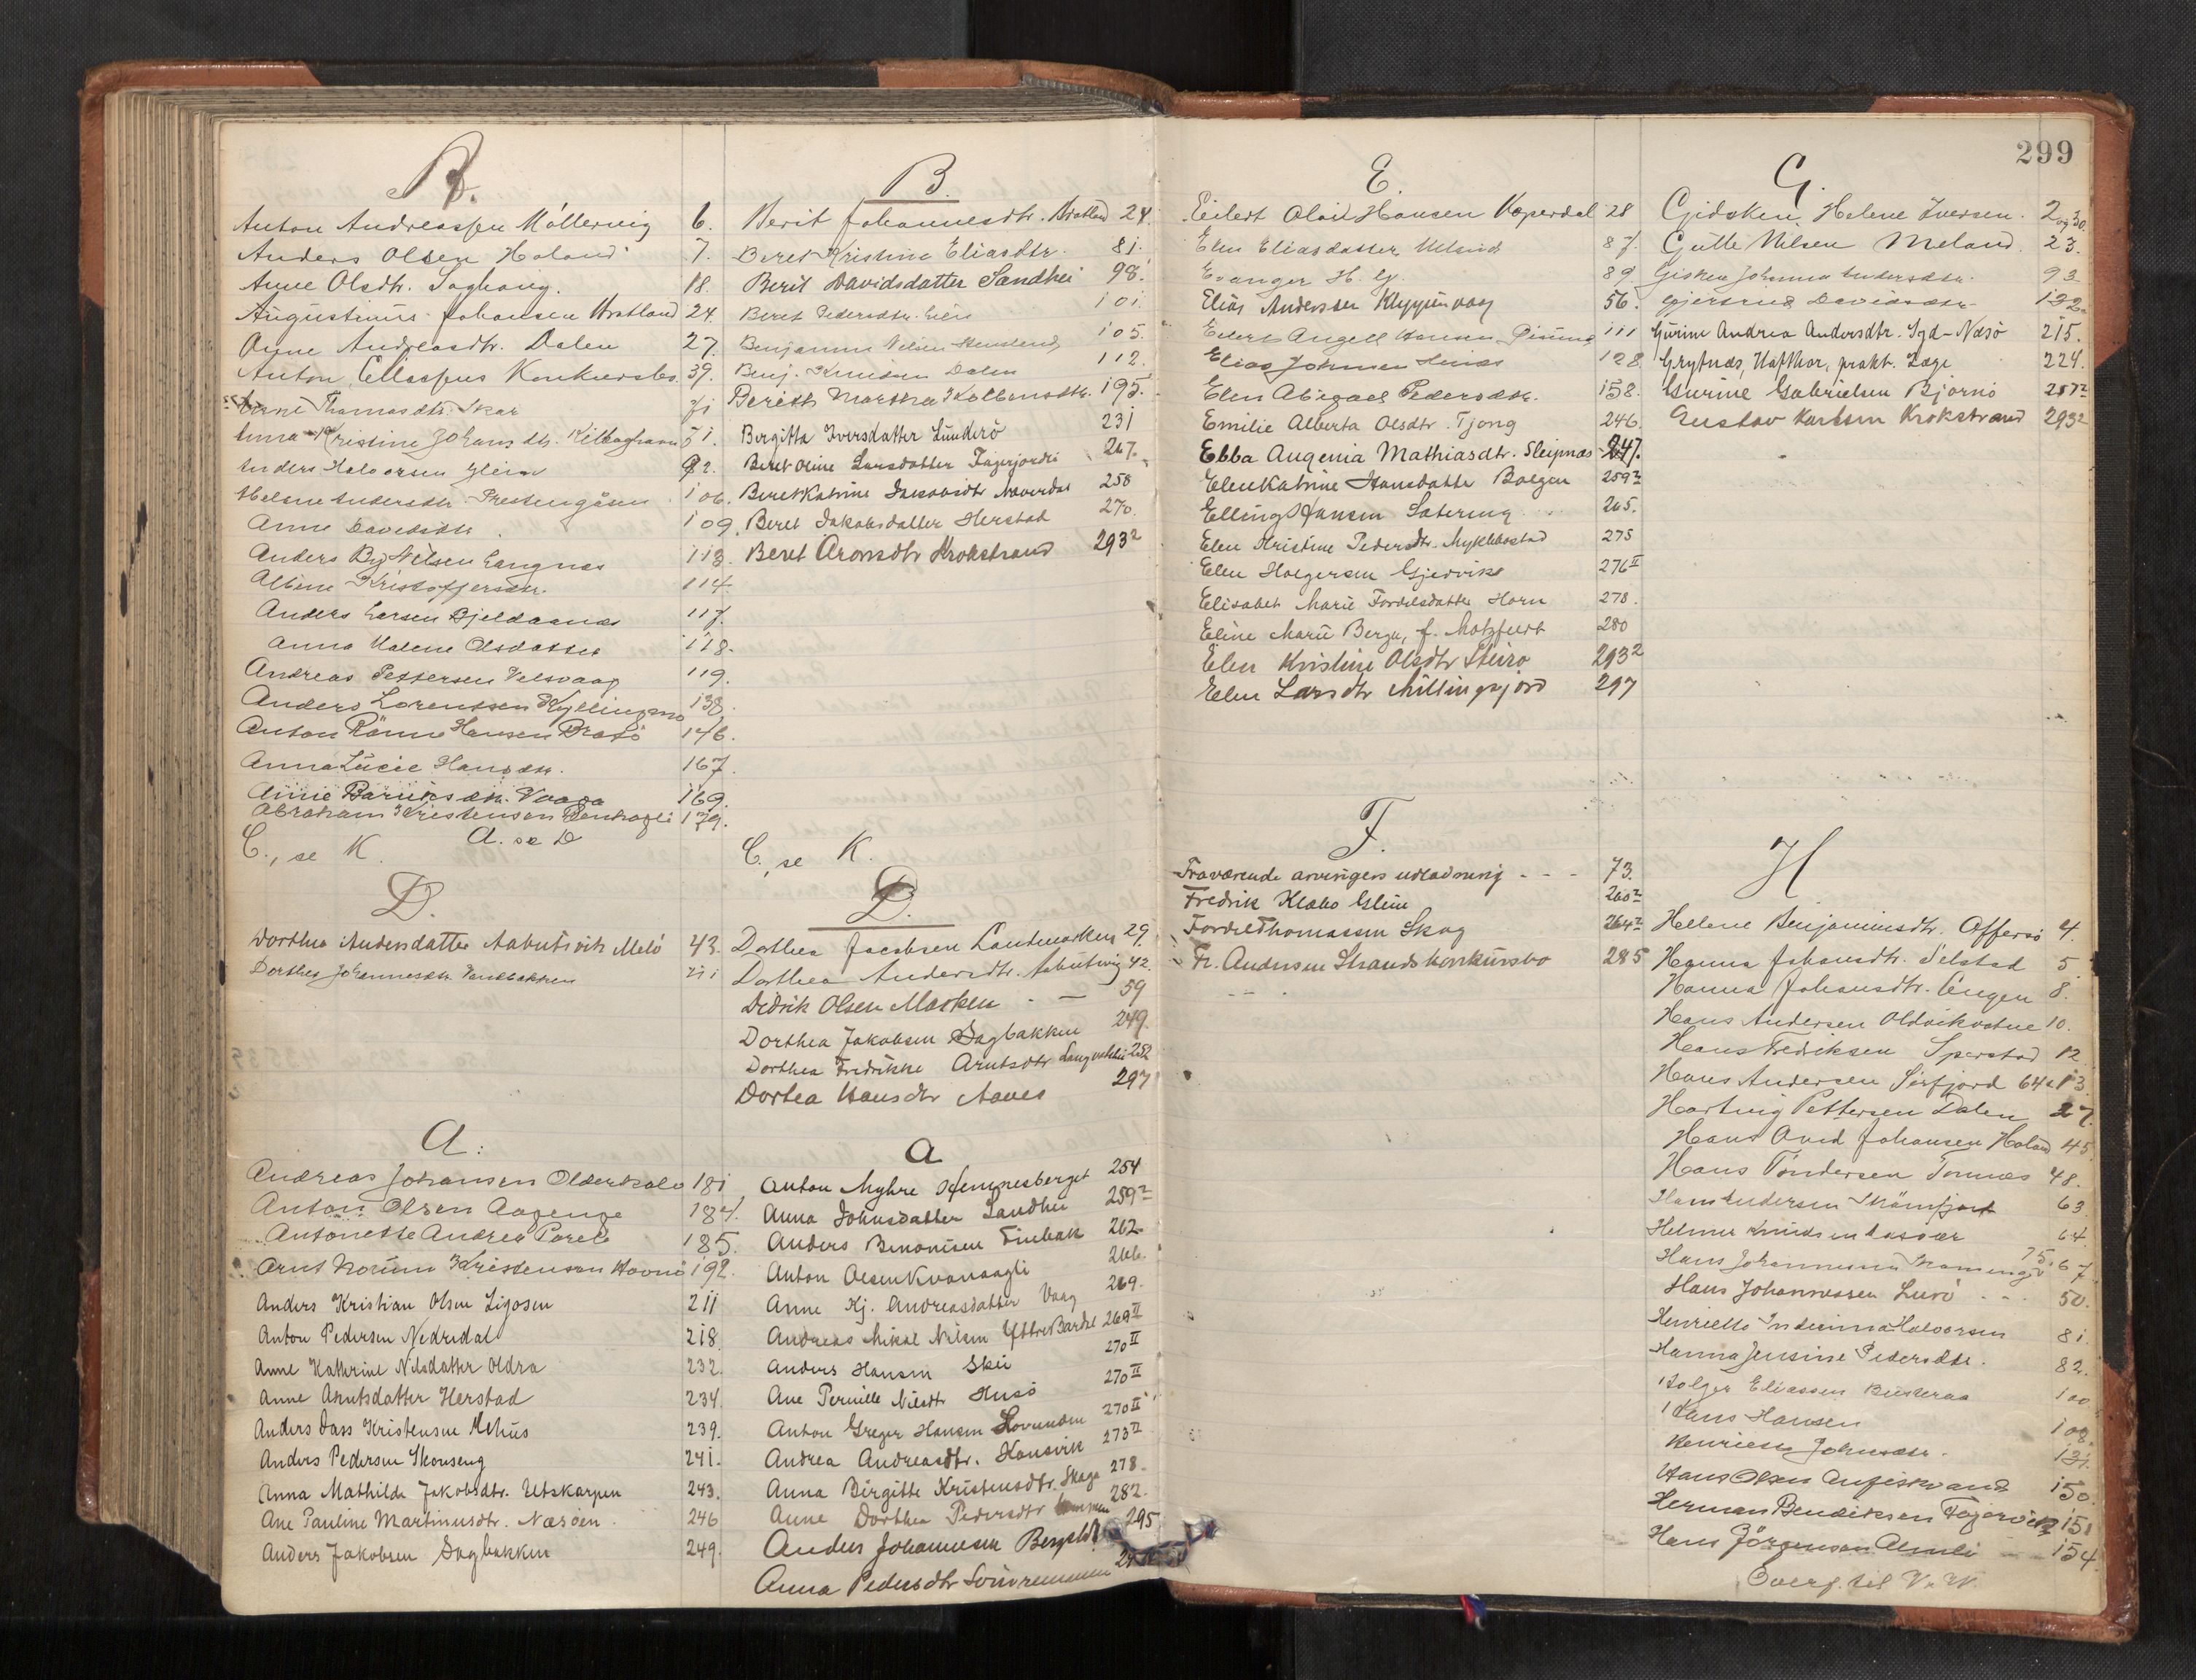 A.
Anton Andreassen Möllervig 6.
Anders Olsen Holand 7.
Anne Olsdtr. Soghaug. 18.
Augustinus Johansen Bratland 24.
Anne Andreasdtr. Dalen 27.
Anton Eliassens Konkursbo. 39.
Thomasdtr. Skar
Anna Kristine Johansdtr. 51.
Anders Halvorsen Glein 92.
Helene Andersdtr. Prestengåsen 106.
Anne Davidsdtr. 109.
Anders Bg Nilsen Langnes 113.
Albine Kristoffersdtr. 114
Anders Larsen Bjeldaanes 117.
Anna Malene Olsdatter 118.
Andreas Pettersen Velsvaag 119.
Anders Lorentsen Kyllingmo 138.
Anton Rönne Hansen Brasö 146.
Anna Lucie Hansdtr. 167.
Anne Vaaga 169.
Abraham Kristensen 179.
C., se K. A. se D
D.
Dorthea Andersdatter Aabutsvik Melö 43.
Dorthea Johannesdtr. Sandbakken 211
A.
Andreas Johansen Olderskole 181
Anton Olsen Aagenge 184.
Antonette Andrea Parels 185.
Arnt Norum Kristensen Hovni 192.
Anders Kristian Olsen Ligosen 211
Anton Pedersen Nedredal 218.
Anne Kathrine Nilsdatter Oldra 232.
Anne Arntsdatter Herstad 234.
Anders Dass Kristensen Mehus 239.
Anders Pedersen Skonseng 241.
Anna Mathilde Jakobsdtr. Utskarpen 243.
Ane Pauline Martinusdtr. Næsøen. 246
Anders Jakobsen Dagbakken 249.
B.
Berit Johannesdtr. Bratland 24.
Beret Kristine Eliasdtr. 81.
Berit Davidsdatter Sandhei 98.
Beret Pedersdtr. Lien 101.
Benjamin Nilsen 105.
Benj. Knudsen Dalen 112.
Berith Martha Kolbensdtr. 195.
Bergitta Iversdatter Lunderö 231
Beret Oline Larsdatter Fagerjordli 267.
Beret Katrine Jakobsdtr Næverdal 258
Beret Jakobsdatter Herstad 270.
Beret Aronsdtr Krokstrand 293²
C., se K.
D.
Dorthea Jacobsen Landmarken 29.
Dorthea Andersdtr. Aabutsvig 42.
Didrik Olsen Masken - — 59
Dorthea Jakobsen Dagbakken 249.
Dorthea Fredrikke Arntsdtr Langvatnli 252
Dortea Hansdtr Aanes 297
A
Anton Myhre Hemnesberget 254
Anna Johnsdatter Sandhei 259²
Anders Benonisen Finbak 262
Anton Olsen Kvanaagli 266.
Anne Kj. Andreasdatter Vaag 269.
Andreas Mikal Nilsen Yttre Bardal 269II
Anders Hansen Skei 270II
Ane Pernille Nilsdtr Husö 270II
Anton Greger Hansen Lovunden 270II
Andrea Andreasdtr. Hansvik 273II
Anna Birgitte Kristensdtr. Skaga 278.
Anne Dorthea Pedersdtr 282.
Anders Johannesen Bergslid 295
Anna Pedersdtr Sörremmen
299
E.
Eilert Olai Hansen Væperdal 28
Elen Eliasdatter Ulsund 87.
Evanger H. Ej. 89
Elias Andersen Klyppinvaag 56.
Eilert Angell Hansen 111
Elias Johnsen Leinæs 128
Elen Abigael Pedersdtr. 158.
Emilie Alberta Olsdtr. Tjong 246.
Ebba Augenia Mathiasdtr. Sleipnæs 247.
Elen Katrine Hansdatter Bolgen 259²
Elling Hansen Sætering 265.
Elen Kristine Pedersdtr. Myklebostad 275
Elen Holgersen Gjervik 276II
Elisabet Marie Fordelsdatter Horn 278.
Eline Marie Berge, f. Motzfeldt 280
Elen Kristine Olsdtr Steiro 293²
Elen Larsdtr Millingsjord 297
F.
Fraværende arvingers udlodning - - - 73.
Fredrik Klæbo Glein 260²
Fordel Thomassen Skog 264²
Fr. Andersen Strands konkursbo 285
G.
Gidsken Helene Iversen. 2 og 30.
Gutte Nilsen Meland. 23.
Gisken Johanna Andersdtr. 93
Gjertrud Davidsdtr. 132.
Gurine Andrea Andersdtr. Sgd-Næsö 215.
Grytnæs, Hafthor, prakt. Læge 224.
Gurine Gabrielsen Bjørnö 257²
Gustav Karlsen Krokstrand 293²
H
Helene Benjaminsdtr. Offersö 4.
Hanna Johansdtr. Selstad 5.
Hanna Johansdtr. Engen 8.
Hans Andersen Oldvikvatne 10.
Hans Fredriksen Sperstad 12
Hans Andersen Sörfjord 64 13.
Hartvig Pettersen Dalen 27.
Hans Arnd Johansen Holand 45.
Hans Töndersen Tonnæs 48.
Hans Andersen 63.
Helmer Knudsen Aasvær 64.
Hans Johannesen 75. 67
Hans Johannessen Lurö - - 50.
Henriette Indianna Halvorsen 81.
Hanna Jensine Pedersdtr. 82.
Holger Eliassen 100
Hans Hansen 108.
Henriette Johnsdtr. 121.
Hans Olsen Anfiskvand 150.
Herman Bendiksen Fagervik 151
Hans Jörgensen Almli 154.
Overf. til V. W.